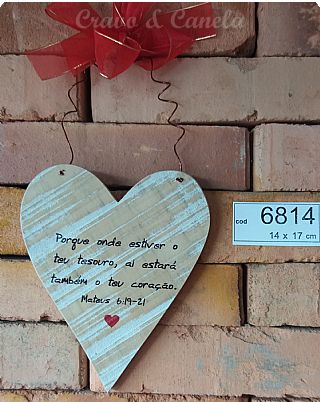 Cravo & Canela
Porque onde estiver o
teu tesouro, aí estará
também o teu coração.
Mateus 6:19-21
cod 6814
14 x 17 cm